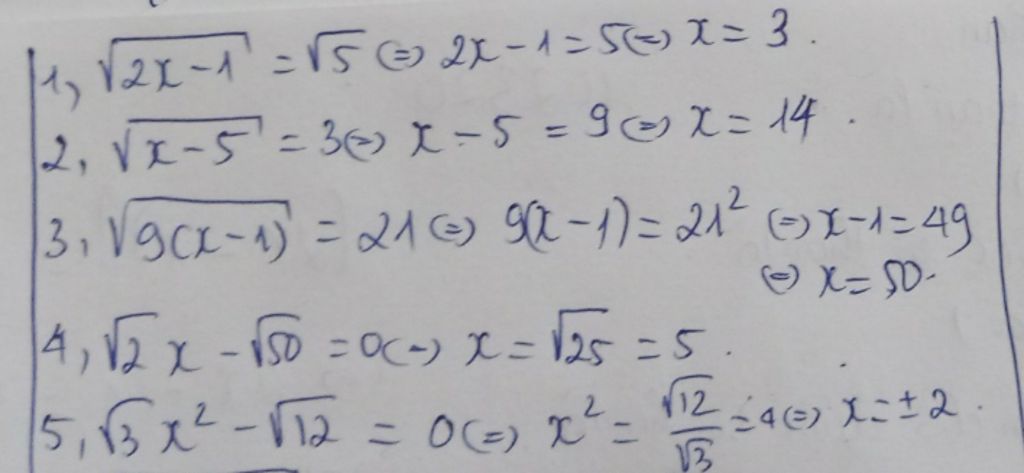 1, √(2x-1) = √5 (=) 2x - 1 = 5 (=) x = 3.
2, √(x-5) = 3 (=) x - 5 = 9 (=) x = 14.
3, √(9(x-1)) = 21 (=) 9(x-1) = 21² (=) x-1 = 49
(=) x = 50.
4, √2 x - √50 = 0 (-) x = √25 = 5.
5, √3 x² - √12 = 0 (=) x² = √12/√3 = 4 (=) x = ±2.